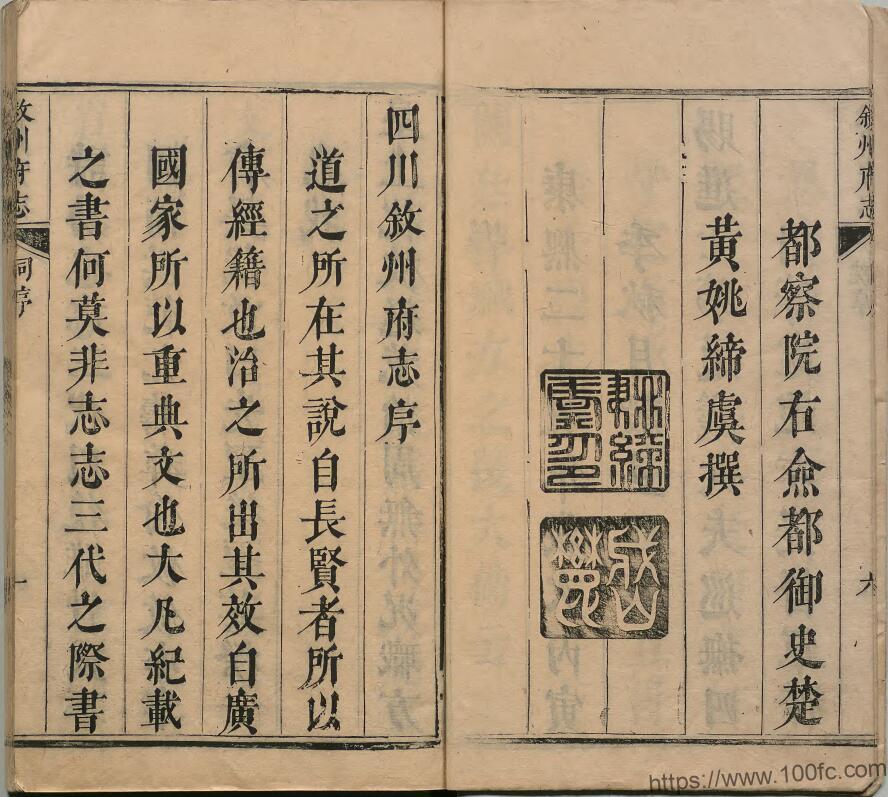 敘州府志
六
都察院右僉都御史楚
黃姚締虞撰
姚締虞印
四川敘州府志序
道之所在其說自長賢者所以
傳經籍也治之所出其效自廣
國家所以重典文也大凡紀載
之書何莫非志志三代之際書
敘州府志
序
一
https://www.100fc.com